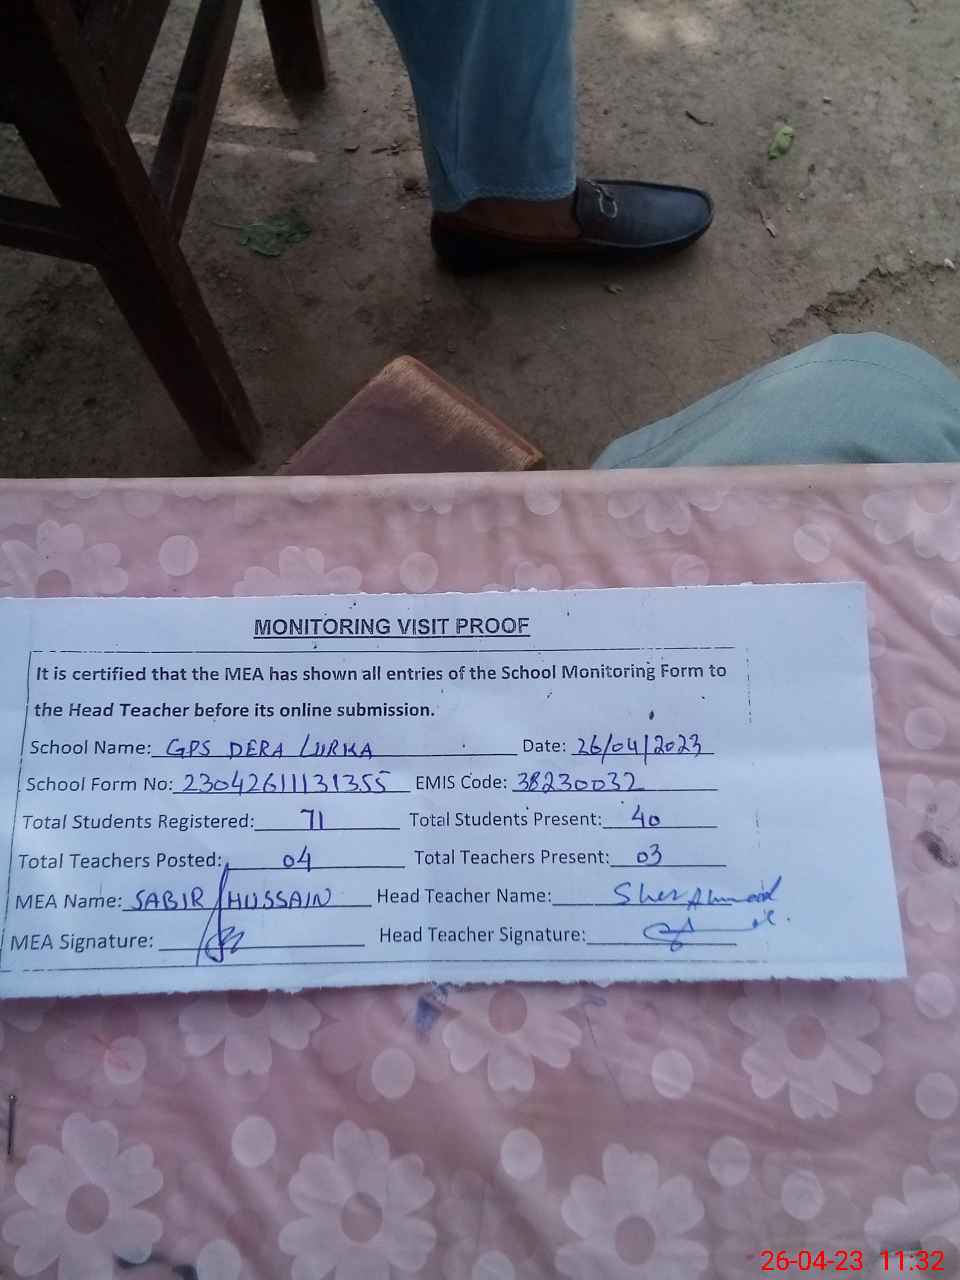 MONITORING VISIT PROOF
It is certified that the MEA has shown all entries of the School Monitoring Form to
the Head Teacher before its online submission.
School Name: GPS DERA LURKA Date: 26/04/2023
School Form No: 23042611131355 EMIS Code: 38230032
Total Students Registered: 71 Total Students Present: 40
Total Teachers Posted: 04 Total Teachers Present: 03
MEA Name: SABIR HUSSAIN Head Teacher Name: Sher Ahmad
MEA Signature: Head Teacher Signature:
26-04-23 11:32